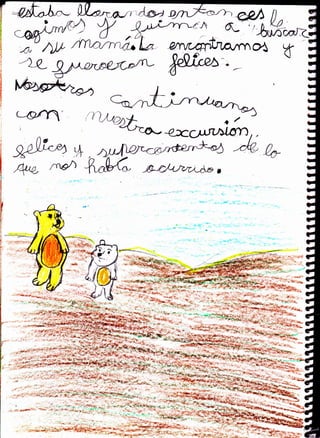 estaba llorando, entonces lo
cogimos y fuimos a buscar
a su mamá. La encontramos y
se fueron felices.
Nosotros continuamos
con nuestra excursión,
felices y supercontentos de lo
que nos había ocurrido.